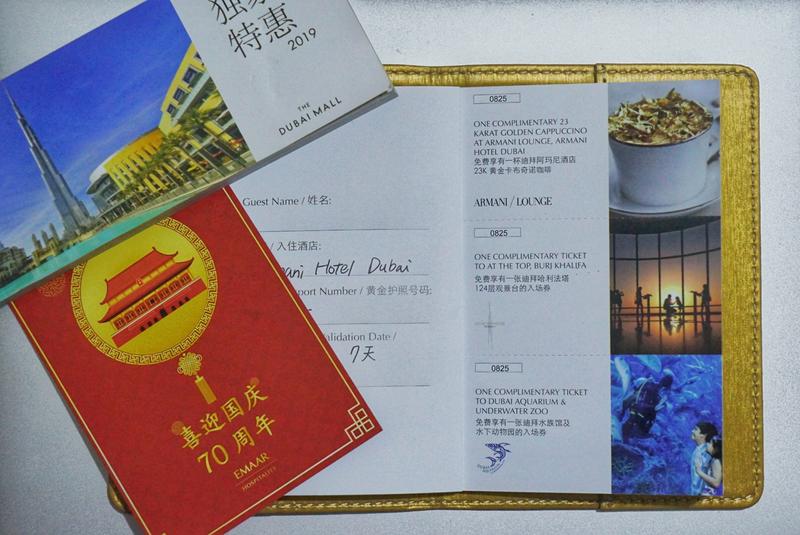 独家
特惠
2019
THE
DUBAI MALL
喜迎国庆
70周年
EMAAR
HOSPITALITY
Guest Name / 姓名:
/ 入住酒店:
ani Hotel Dubai
port Number / 黄金护照号码:
alidation Date /
7天
0825
ONE COMPLIMENTARY 23
KARAT GOLDEN CAPPUCCINO
AT ARMANI LOUNGE, ARMANI
HOTEL DUBAI
免费享有一杯迪拜阿玛尼酒店
23K 黄金卡布奇诺咖啡
ARMANI / LOUNGE
0825
ONE COMPLIMENTARY TICKET
TO AT THE TOP, BURJ KHALIFA
免费享有一张迪拜哈利法塔
124层观景台的入场券
0825
ONE COMPLIMENTARY TICKET
TO DUBAI AQUARIUM &
UNDERWATER ZOO
免费享有一张迪拜水族馆及
水下动物园的入场券